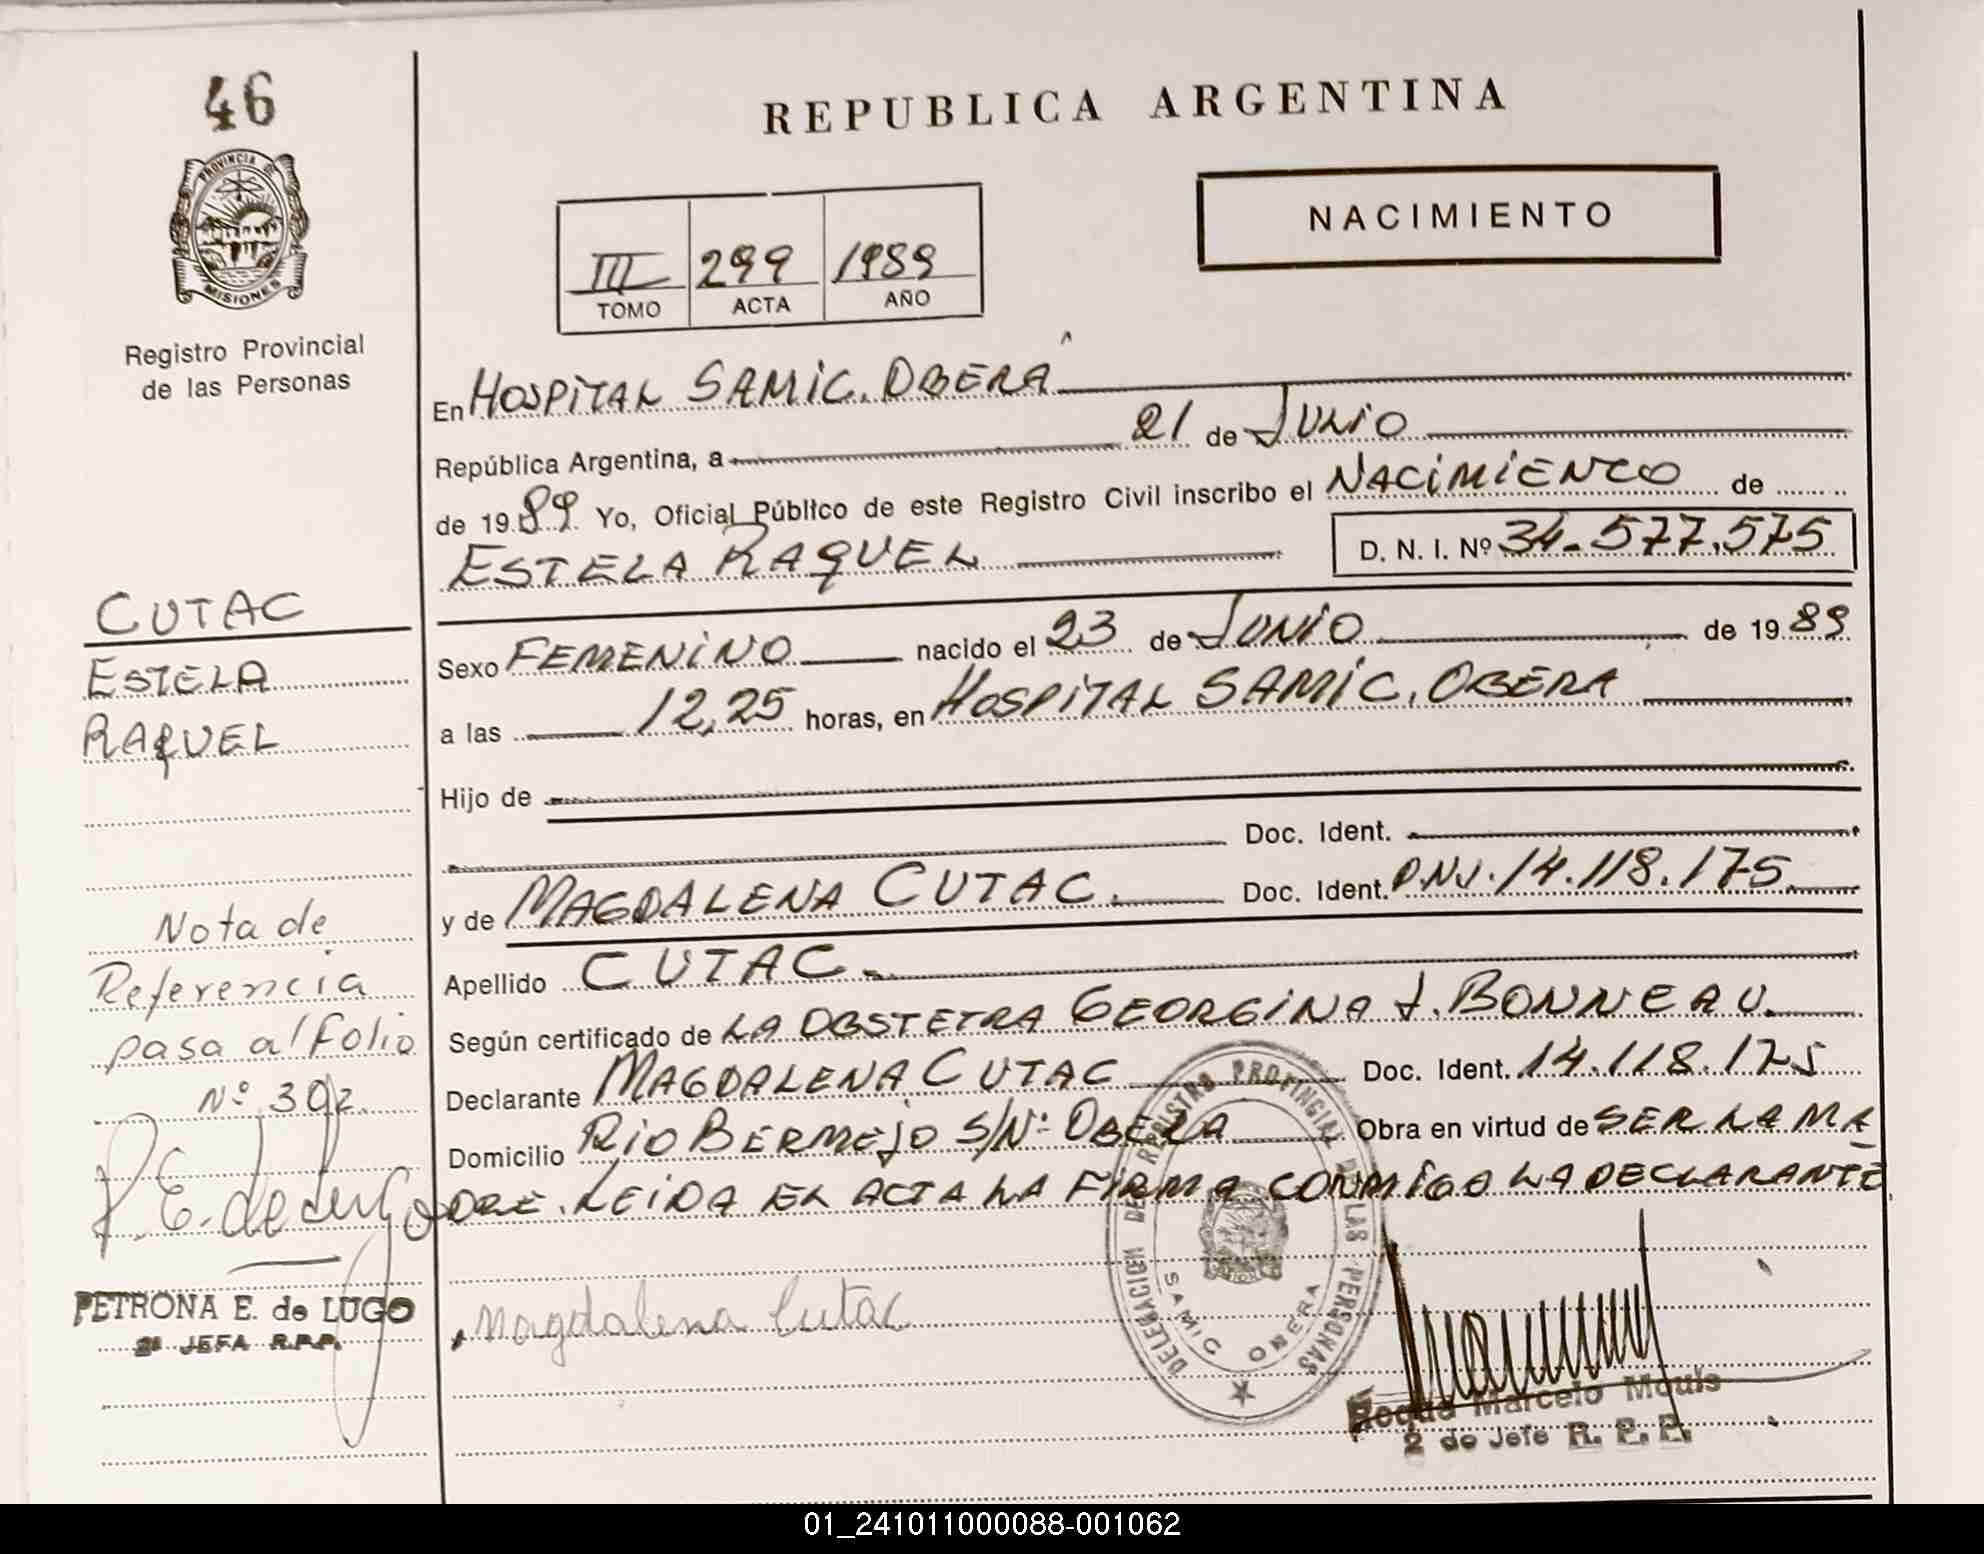 46
REPUBLICA ARGENTINA
PROVINCIA DE
MISIONES
NACIMIENTO
III 299 1989
TOMO ACTA AÑO
Registro Provincial
de las Personas
En HOSPITAL SAMIC. OBERÁ
República Argentina, a 21 de JULIO
de 1989 Yo, Oficial Público de este Registro Civil inscribo el NACIMIENTO de
ESTELA RAQUEL D. N. I. Nº 34.577.575
CUTAC
ESTELA
RAQUEL
Sexo FEMENINO nacido el 23 de JUNIO de 1989
a las 12,25 horas, en HOSPITAL SAMIC. OBERA
Hijo de
Doc. Ident.
y de MAGDALENA CUTAC. Doc. Ident. D.N.I. 14.118.175
Apellido CUTAC.
Según certificado de LA OBSTETRA GEORGINA J. BONNEAU.
Declarante MAGDALENA CUTAC Doc. Ident. 14.118.175
Domicilio RIO BERMEJO S/Nº OBERA Obra en virtud de SER LA MA
DRE. LEIDA EL ACTA LA FIRMA CONMIGO LA DECLARANTE
Nota de
Referencia
pasa al folio
Nº 392
P. E. de Lugo
PETRONA E. de LUGO
2ª JEFA R.P.P.
Magdalena Cutac
DELEGACION DE REGISTRO PROVINCIAL DE LAS PERSONAS
SAMIC OBERA
Roque Marcelo Mouls
2 do Jefe R. P. P.
01_241011000088-001062